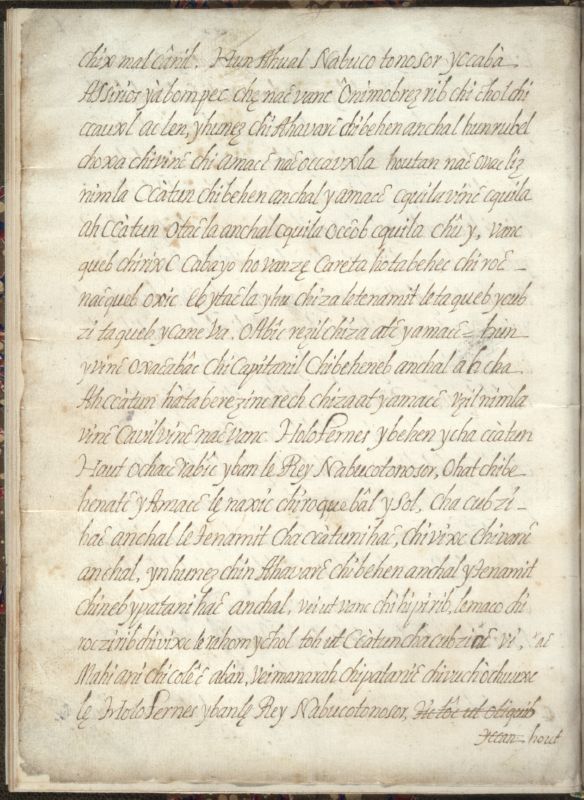 chix mal cânil. Hun Ahual Nabuco tonosor yccabà
Assirios yàbom pec che naē vanc Ônimobrez rib chi chol chi
ccauxl ac len, yhunez chi Ahavarē chibehen anchal hunrubel
choxa chi vinē chi amacē naē occavxla houtan naē ovac liz
nimla Ccàtun chibehen anchal y amacē cquila vinē cquila
ah ccàtun otaēla anchal cquila ocēob cquila chu y, vanc
queb chirixē Cabayo ho vanze Careta hotabehec chi roē
naē queb oxic eb ytaēla yhu chiza le tenamit le ta queb ycub
zi ta queb y cane va. Oabic rezil chiza atē y amacē hun
y vinē oxacabâc Chi Capitanil Chibeheneb anchal ah cha
Ah ccàtun hataberezinc rech chiza at yamacē vzil nimla
vinē Cavil vinē naē vanc Holofernes y behen y cha ccàtun
Haut ochac rabic yban le Rey Nabucotonosor, Ohat chibe
henatē y Amacē le naxic chiroquebâl y sol, cha cubzi
haē anchal le tenamit cha ccatuni haē, chi vixc chi vanē
anchal, yn hunez chin Ahavarē chibehen anchal y tenamit
chineb y patani haē anchal, vei ut vanc chi hipirib, lemaco chi
roczirib chi vixc le rahom ychol toh ut Ccatun cha cubzi aē vi, aē
Mahi ani chi colē abàn, vei manarah chi patanic chi vuch ochvuxc
le Holofernes yban le Rey Nabucotonosor, Hi toc ut otiquib
Yccan hout